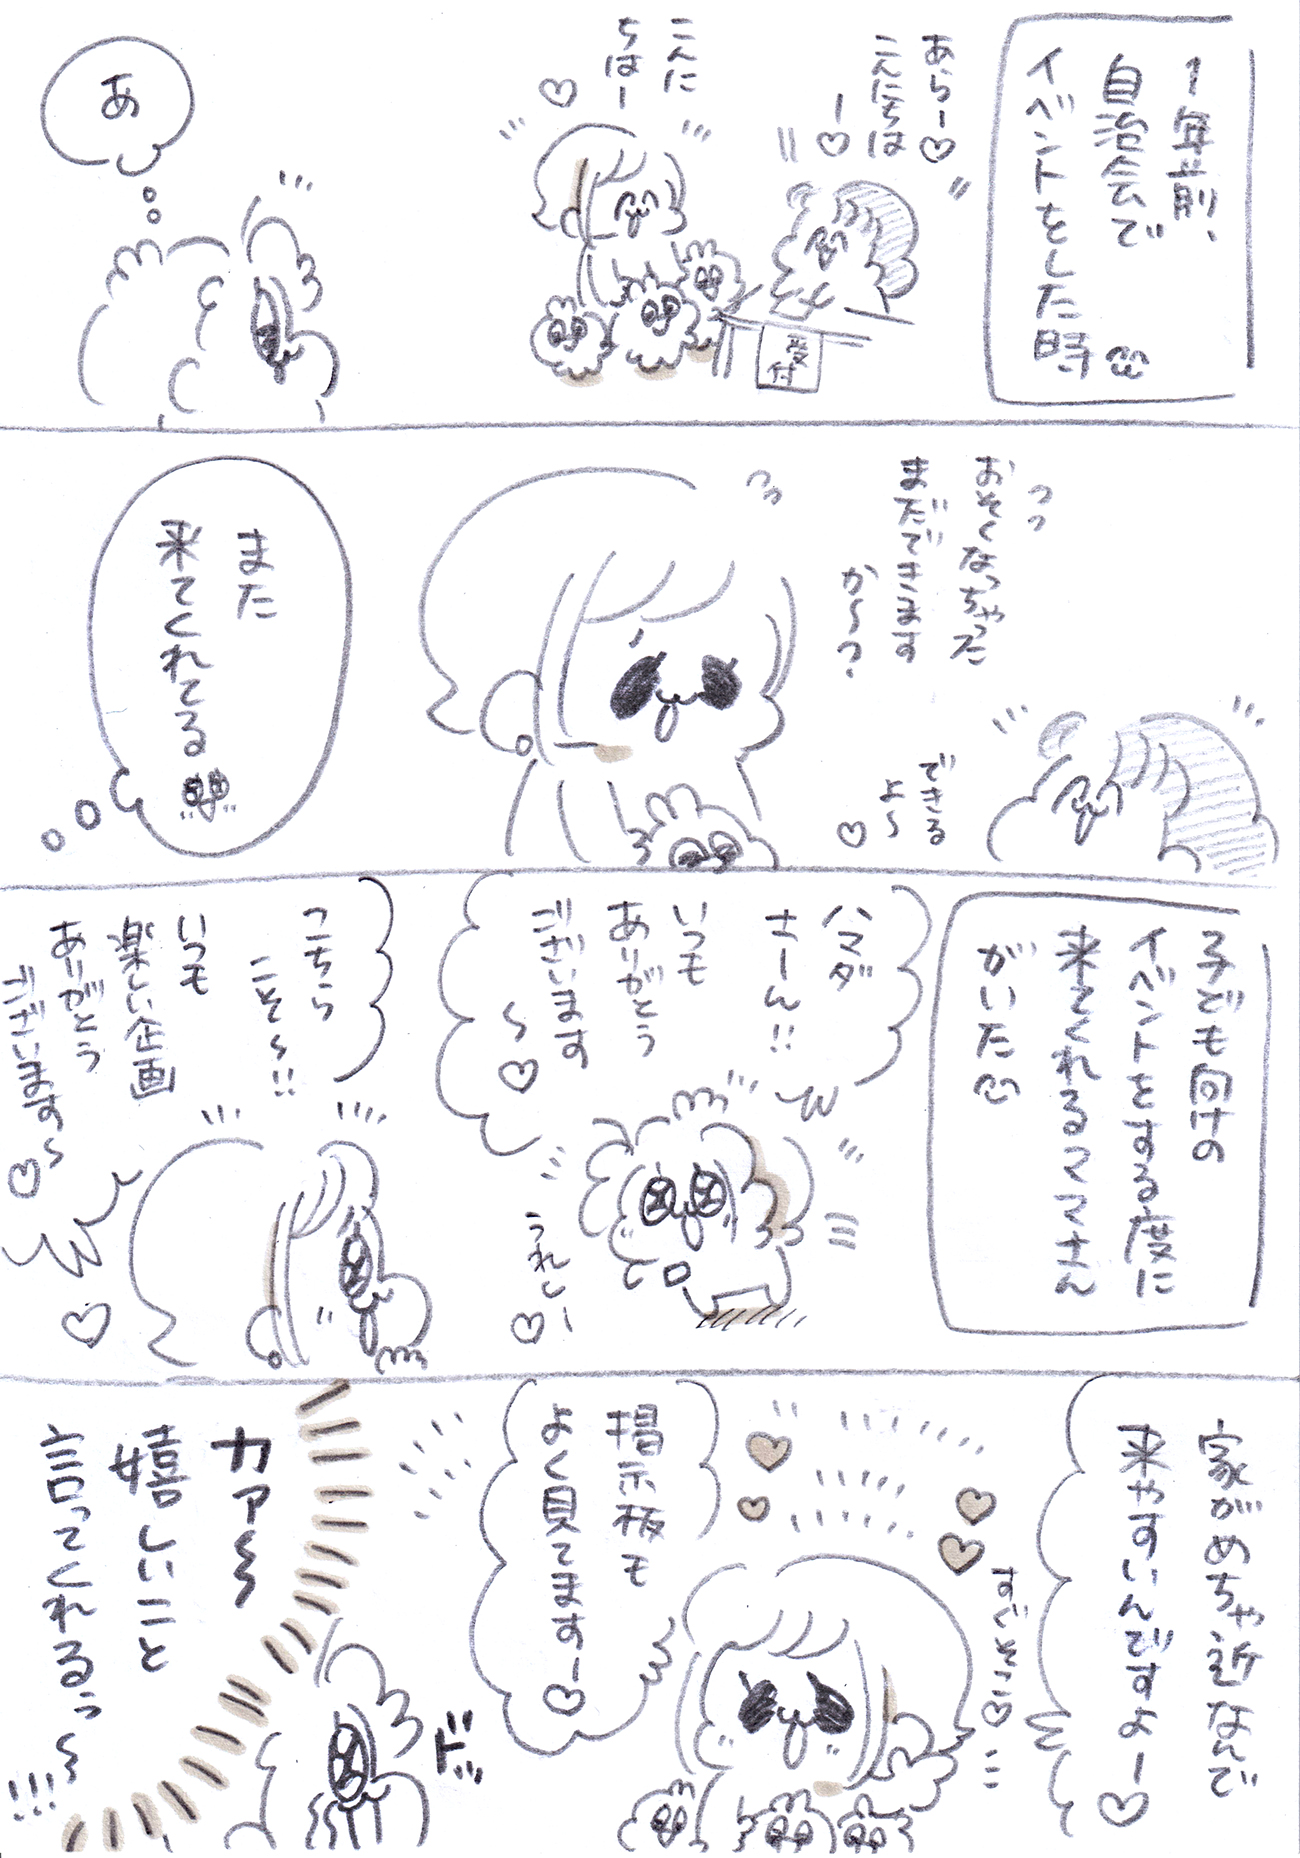 1年前、
自治会で
イベントをした時
あらー♡
こんにちは
ー♡
こんに
ちはー
♡
受付
あ
おそくなっちゃった
まだできます
か〜?
できる
よ〜
♡
また
来てくれてる
子ども向けの
イベントをする度に
来てくれるママさん
がいた
ハマダ
さーん!!
いつも
ありがとう
ございます
〜♡
うれしー
♡
こちら
こそ〜!!
いつも
楽しい企画
ありがとう
ございます〜
♡
家がめちゃ近なんで
来やすいんですよー♡
すぐそこ♡
掲示板も
よく見てますー♡
ド
カァ〜
嬉しいこと
言ってくれるぅ〜
!!!